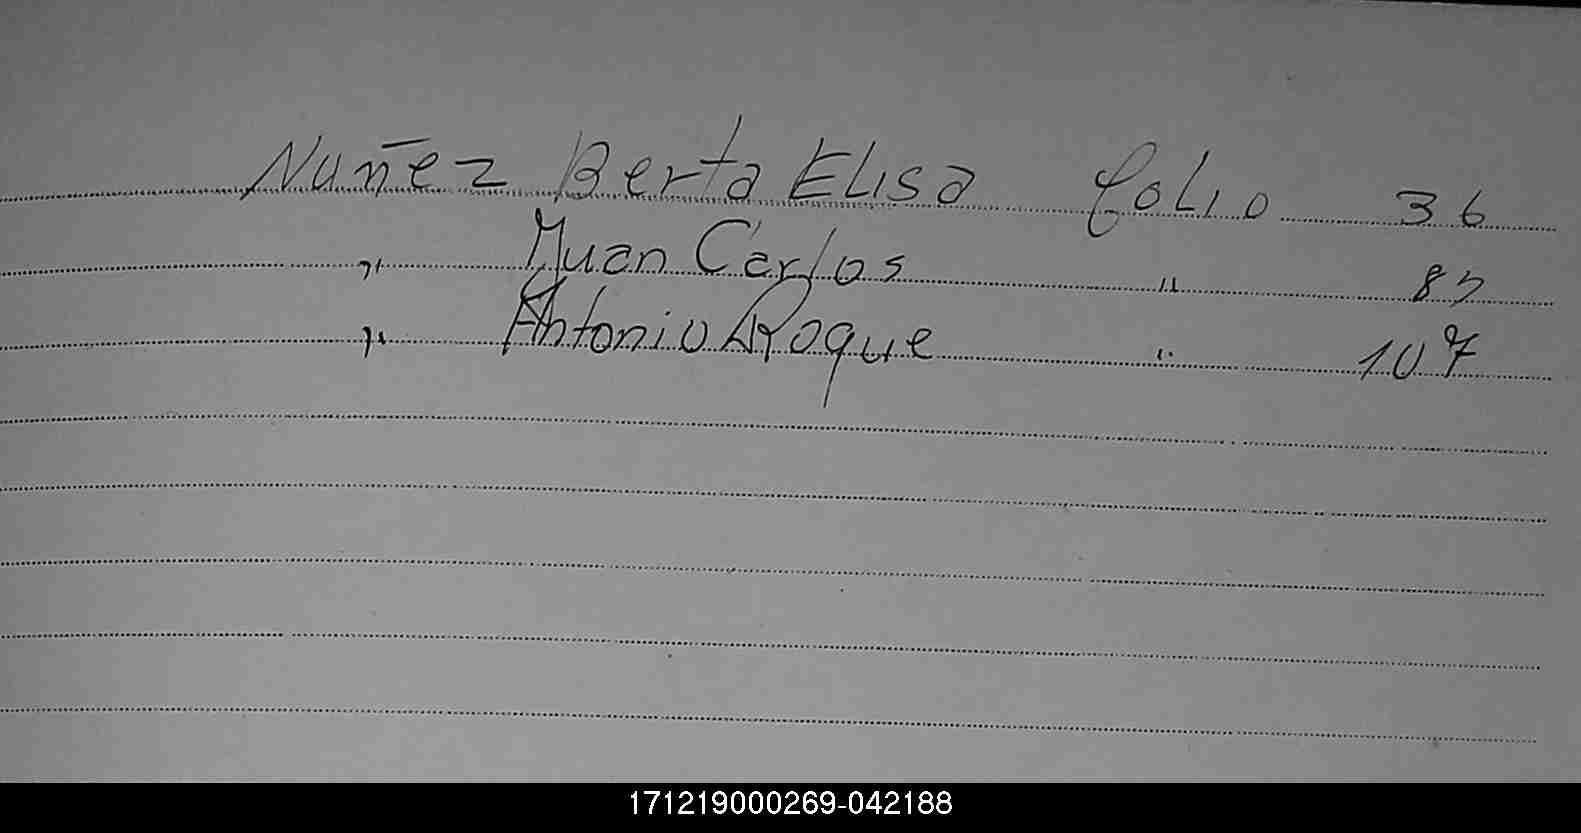 Nuñez Berta Elisa folio 36
" Juan Carlos " 87
" Antonio Roque " 107
171219000269-042188